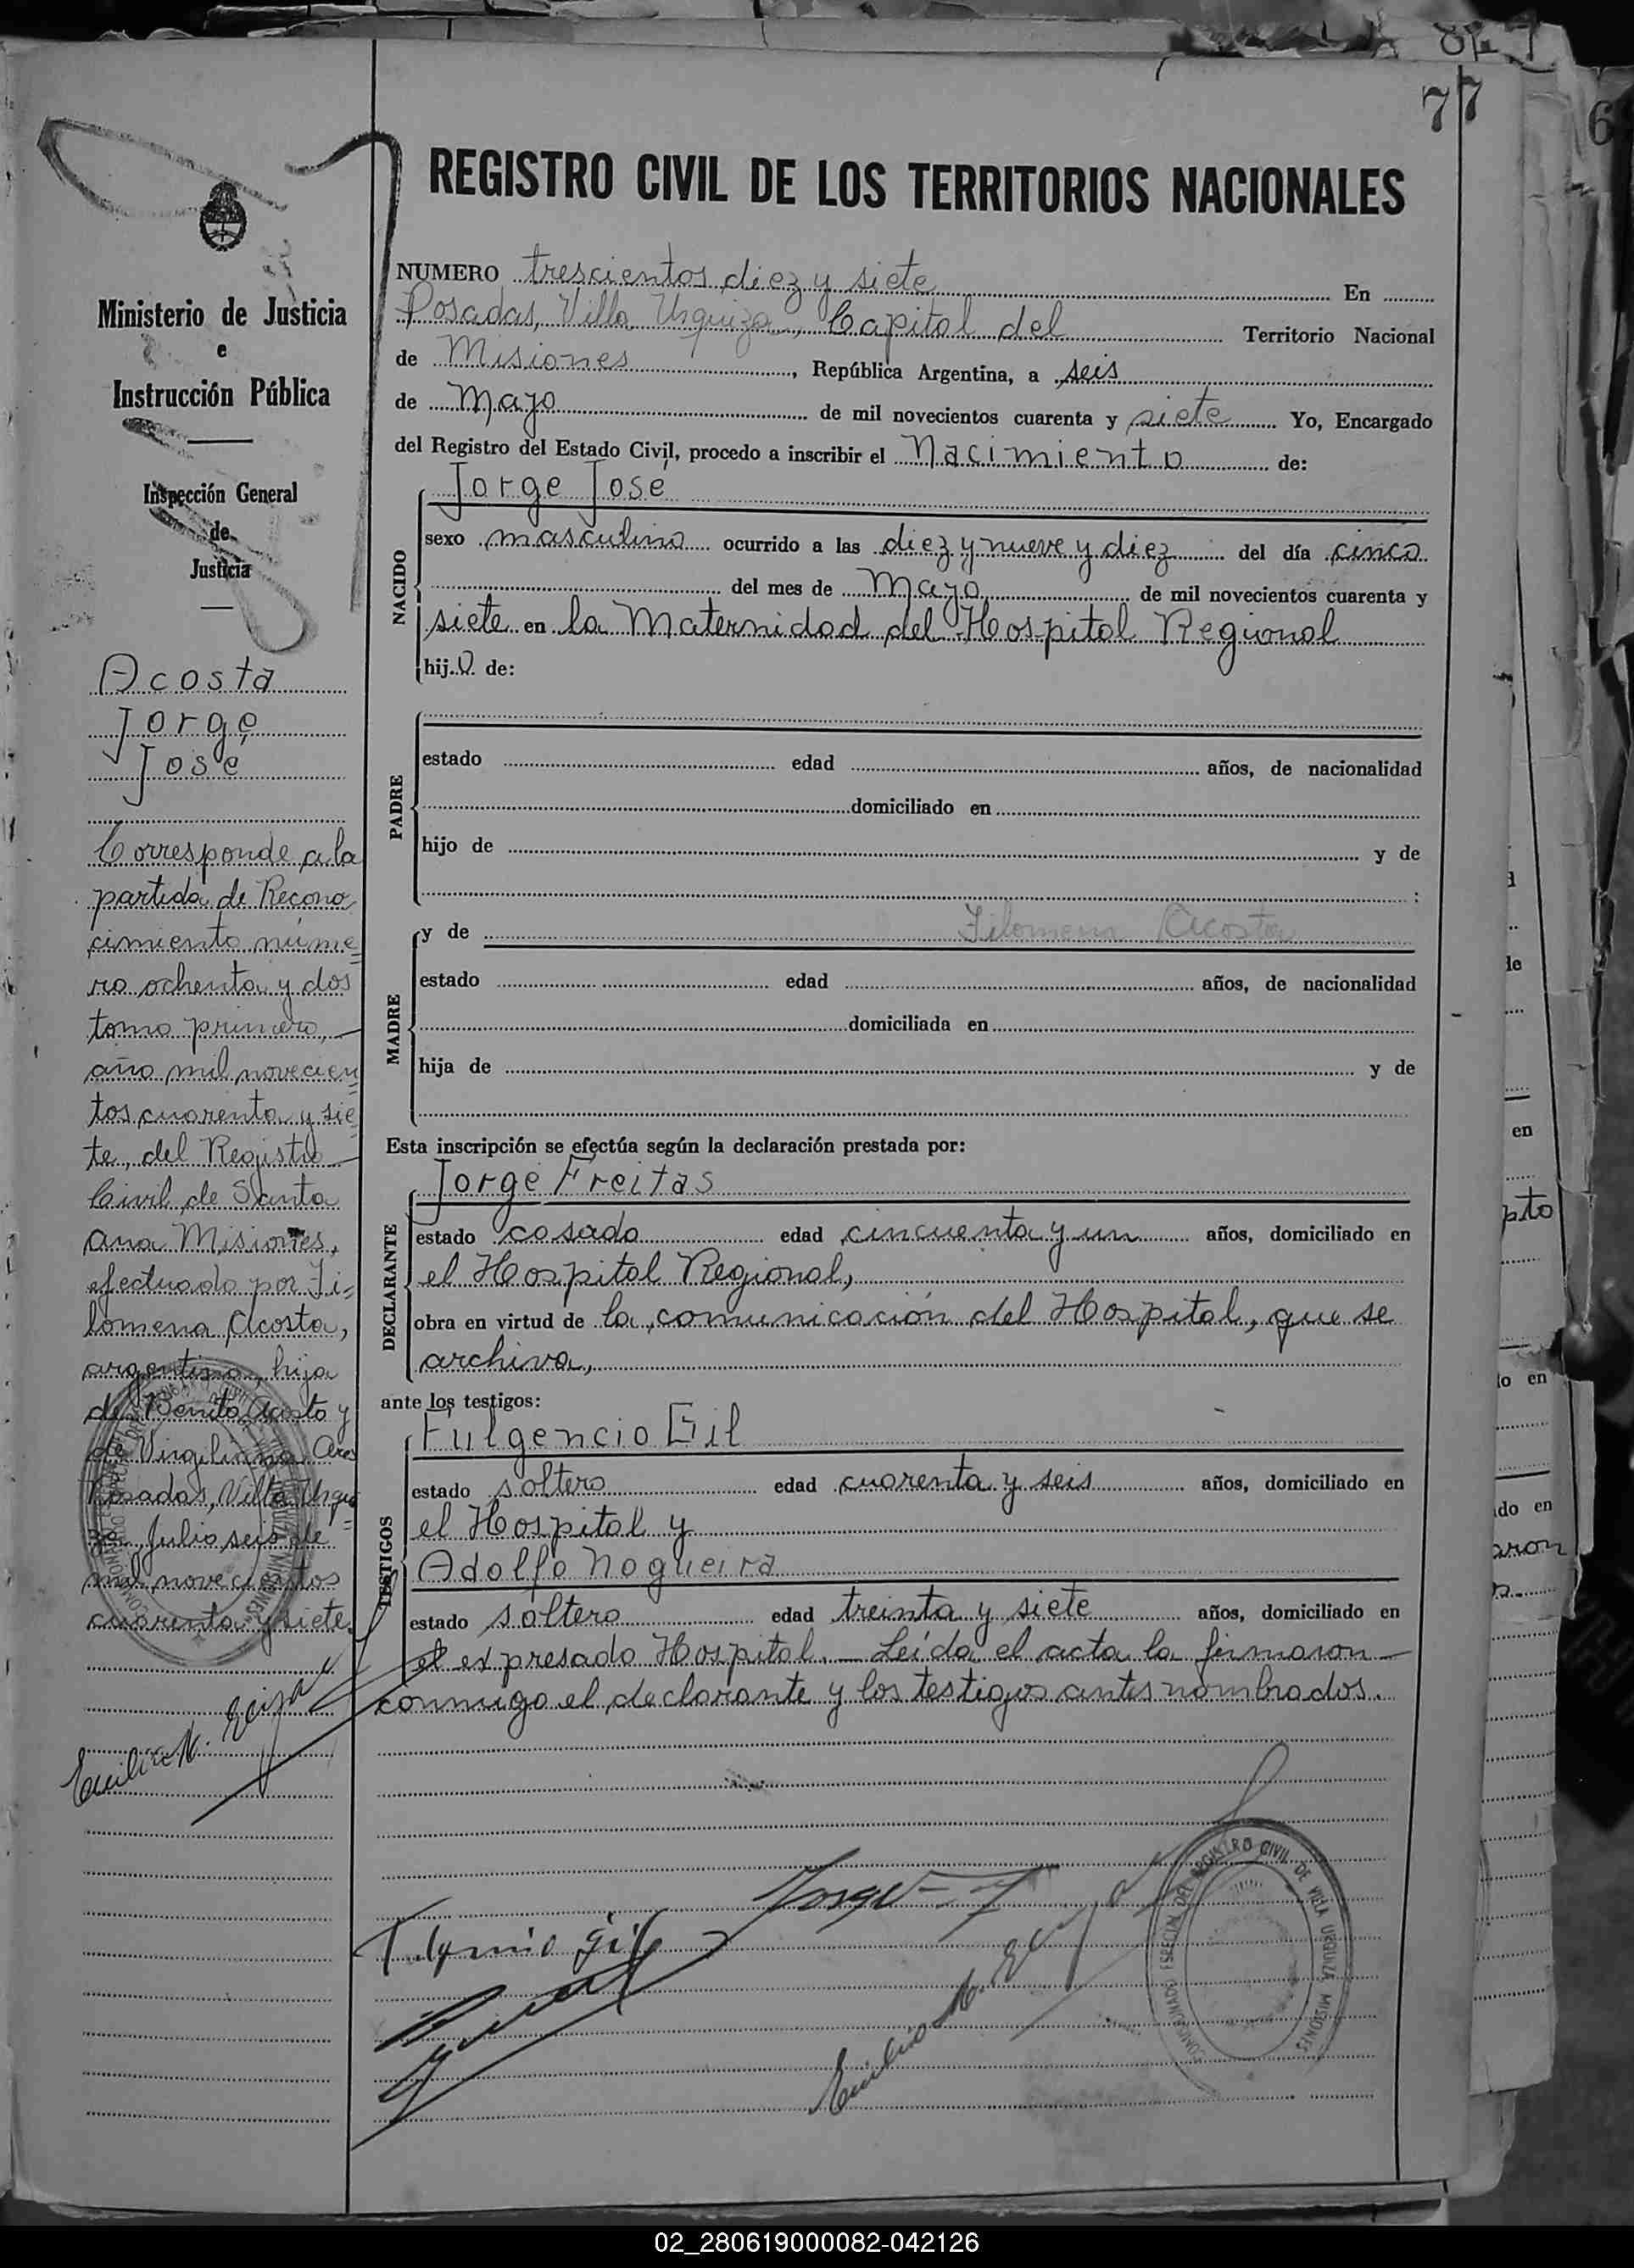 77
REGISTRO CIVIL DE LOS TERRITORIOS NACIONALES
NUMERO trescientos diez y siete En
Posadas, Villa Urquiza, Capital del Territorio Nacional
de Misiones, República Argentina, a seis
de Mayo de mil novecientos cuarenta y siete Yo, Encargado
del Registro del Estado Civil, procedo a inscribir el Nacimiento de:
NACIDO
Jorge José
sexo masculino ocurrido a las diez y nueve y diez del día cinco
del mes de Mayo de mil novecientos cuarenta y
siete en la Maternidad del Hospital Regional
hijo de:
PADRE
estado edad años, de nacionalidad
domiciliado en
hijo de y de
:
MADRE
y de Filomena Acosta
estado edad años, de nacionalidad
domiciliada en
hija de y de
Esta inscripción se efectúa según la declaración prestada por:
DECLARANTE
Jorge Freitas
estado casado edad cincuenta y un años, domiciliado en
el Hospital Regional,
obra en virtud de la comunicación del Hospital, que se
archiva,
ante los testigos:
TESTIGOS
Fulgencio Gil
estado soltero edad cuarenta y seis años, domiciliado en
el Hospital y
Adolfo Nogueira
estado soltero edad treinta y siete años, domiciliado en
el expresado Hospital. — Leída el acta la firmaron —
conmigo el declarante y los testigos antes nombrados.
Ministerio de Justicia
e
Instrucción Pública
Inspección General
de
Justicia
Acosta
Jorge
José
Corresponde a la
partida de Recono
cimiento núme=
ro ochenta y dos
tomo primero, —
año mil novecien=
tos cuarenta y sie=
te, del Registro —
Civil de Santa
Ana Misiones,
efectuado por Fi=
lomena Acosta,
argentina, hija
de Benito Acosta y
de Virgiliana
Posadas, Villa Urqui=
za, Julio seis de
mil novecientos
cuarenta y siete.
Jorge F
Gil
COMISIONADO ESPECIAL DEL REGISTRO CIVIL DE VILLA URQUIZA MISIONES
02_280619000082-042126